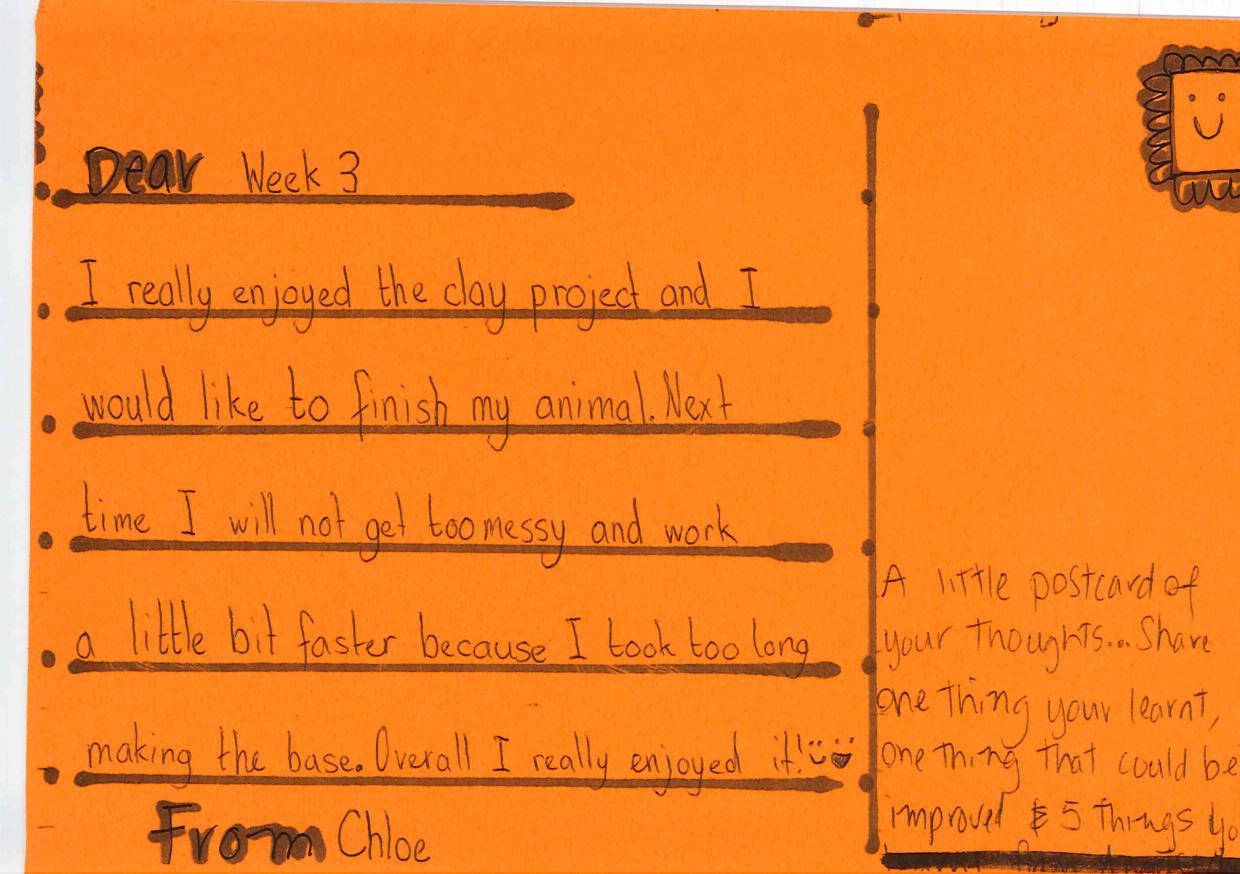 Dear Week 3
I really enjoyed the clay project and I
would like to finish my animal. Next
time I will not get too messy and work
a little bit faster because I took too long
making the base. Overall I really enjoyed it!
From Chloe
A little postcard of
your thoughts... Share
one thing your learnt,
one thing that could be
improved & 5 things yo